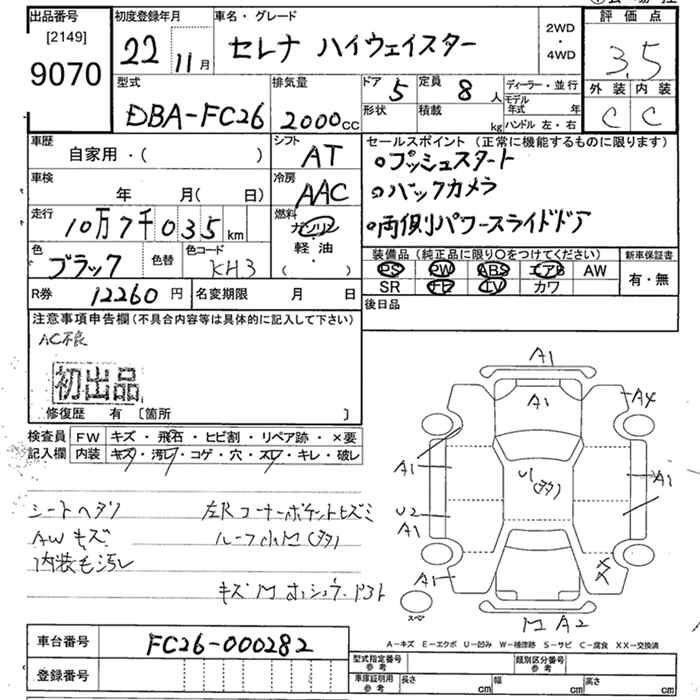 出品番号 初度登録年月 車名・グレード 評価点
[2149] 9070
22 11月 セレナ ハイウェイスター 2WD・4WD 3.5
外装 内装
C C
型式 DBA-FC26 排気量 2000cc
ドア 5 定員 8人 ディーラー・並行
形状 積載 kg モデル年式 年
ハンドル 左・右
車歴 自家用・( ) シフト AT
セールスポイント (正常に機能するものに限ります)
・プッシュスタート
・バックカメラ
・両側パワースライドドア
車検 年 月( 日) 冷房 AAC
走行 10万7千035km 燃料 ガソリン 軽油 ( )
色 ブラック 色替 色コード KH3
装備品 (純正品に限り〇をつけてください) 新車保証書
PS PW ABS エアB AW 有・無
SR TV カワ
R券 12260円 名変期限 月 日
後日品
注意事項申告欄(不具合内容等は具体的に記入して下さい)
AC不良
初出品
修復歴 有 〔箇所 〕
検査員記入欄 FW キズ・飛石・ヒビ割・リペア跡・×要
内装 キズ・汚レ・コゲ・穴・スレ・キレ・破レ
シートヘタリ
AWキズ
内装も汚レ
左Rコーナーポケットキズミ
ルーフ小M(タタ)
A1
A1
A4
A1
U1(タタ)
A1
U2
A1
A1
XX
スペア
M A2
A-キズ E-エクボ U-凹み W-補修跡 S-サビ C-腐食 XX-交換済
車台番号 FC26-000282
登録番号
型式指定番号 参考 類別区分番号 参考
車庫証明用 参考 長さ cm 幅 cm 高さ cm